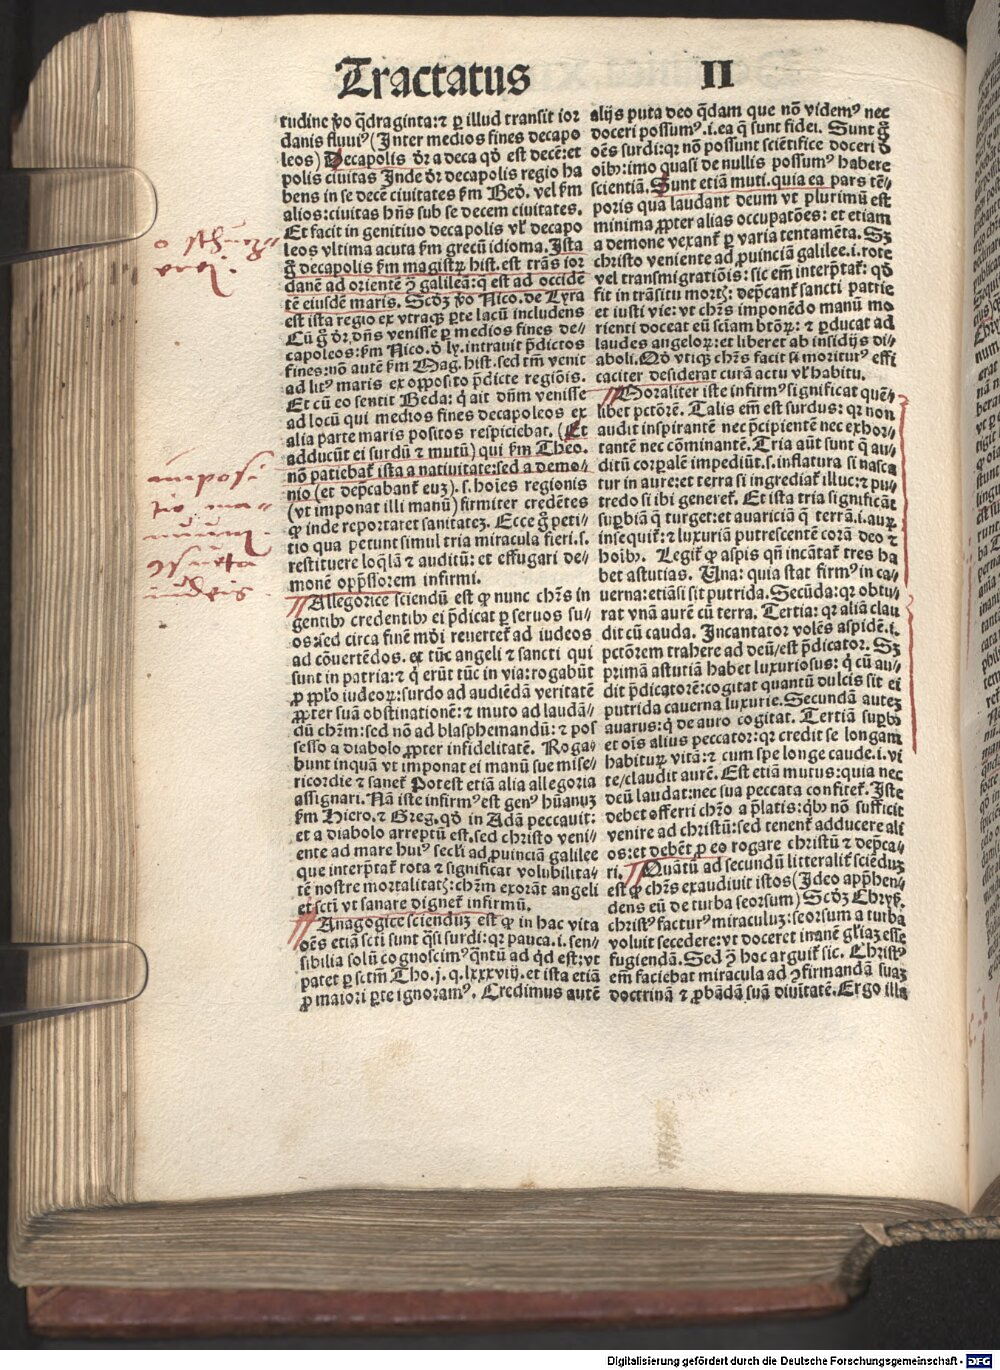 Tractatus II
tudine ṽo q̃draginta: ⁊ ꝑ illud transit ior
danis fluuiꝰ (Inter medios fines decapo
leos) Decapolis dr̃ a deca qď est decē: et
polis ciuitas Inde dr̃ decapolis regio ha
bens in se decē ciuitates ẜm Bed̕. vel ẜm
alios: ciuitas hñs sub se decem ciuitates.
Et facit in genitiuo decapolis vl̕ decapo
leos vltima acuta ẜm grecū idioma. Ista
g̃ decapolis ẜm magistꝝ hist. est trãs ior
danē ad orientē ꝯ̃ galileā: q̃ est ad occidē
tē eiusdē maris. Scďꝫ ṽo Nico. de Lyra
est ista regio ex vtraqꝫ ꝑte lacū includens
Cū g̃ dr̃. dñs venisse ꝑ medios fines de⸗
capoleos: ẜm Nico. đ ly. intrauit p̃dictos
fines: nō autē ẜm Mag. hist. sed tm̄ venit
ad litꝰ maris ex opposito p̃dicte regiōis.
Et cū eo sentit Beda: q̇ ait dñm venisse
ad locū qui medios fines decapoleos ex
alia parte maris positos respiciebat. (Et
adducūt ei surdū ⁊ mutū) qui ẜm Theo.
nō patiebat̕ ista a natiuitate: sed a demo⸗
nio (et dep̃cabant̕ euꝫ) .s. hoīes regionis
(vt imponat illi manū) firmiter credētes
ꝙ inde reportaret sanitatē. Ecce g̃ peti⸗
tio qua petunt simul tria miracula fieri .s.
restituere loq̃lā ⁊ auditū: et effugari de⸗
monē opp̃ssorem infirmi.
Allegorice sciendū est ꝙ nunc chr̃s in
gentibꝫ credentibꝫ ei p̃dicat ꝑ seruos su⸗
os: sed circa finē mūdi reuertet̕ ad iudeos
ad cōuertēdos. et tūc angeli ⁊ sancti qui
sunt in patria: ⁊ q̇ erūt tūc in via: rogabūt
ꝓ pplo iudeoꝝ: surdo ad audiēdā veritatē
ꝓpter suā obstinationē: ⁊ muto ad laudā⸗
dū chr̃m: sed nō ad blasphemandū: ⁊ pos
sesso a diabolo ꝓpter infidelitatē. Roga⸗
bunt inquā vt imponat ei manū sue mise⸗
ricordie ⁊ sanet̕ Potest etiā alia allegoria
assignari. Nā iste infirmꝰ est genꝰ hūanuꝫ
ẜm Hiero. ⁊ Greg. qď in Adā peccauit:
et a diabolo arreptū est. sed christo veni⸗
ente ad mare huiꝰ secl̕i ad ꝓuinciā galilee
que interp̃tat̕ rota ⁊ significat volubilita⸗
tē nostre mortalitatꝭ: chr̃m exorāt angeli
et sctī vt sanare dignet̕ infirmū.
Anagogice sciendum est ꝙ in hac vita
oēs etiā sctī sunt q̃si surdi: qꝛ pauca .i. sen⸗
sibilia solū cognoscimꝰ q̃ntū ad qd est: vt
patet ꝑ sctm̄ Tho. j. q. lxxxviij. et ista etiā
ꝓ maiori ꝑte ignoramꝰ. Credimus autē
alijs puta deo q̃dam que nō videmꝰ nec
doceri possumꝰ .i. ea q̃ sunt fidei. Sunt g̃
oēs surdi: qꝛ nō possunt scientifice doceri đ
oībꝫ: imo quasi de nullis possumꝰ habere
scientiā. Sunt etiā muti. quia ea pars tē⸗
poris qua laudant deum vt plurimū est
minima ꝓpter alias occupatōes: et etiam
a demone vexant̕ ꝑ varia tentamēta. Sꝫ
christo veniente ad ꝓuinciā galilee .i. rote
vel transmigratiōis: sic em̄ interp̃tat̕: qď
fit in trāsitu mortꝭ: dep̃cant̕ sancti patrie
et iusti vie: vt chr̃s imponēdo manū mo
rienti doceat eū sciam btōꝝ: ⁊ ꝑducat ad
laudes angeloꝝ: et liberet ab insidijs di⸗
aboli. Qď vtiqꝫ chr̃s facit si moriturꝰ effi
caciter desiderat curā actu vl̕ habitu.
Moraliter iste infirmꝰ significat quē⸗
libet pctōrē. Talis em̄ est surdus: qꝛ non
audit inspirantē nec p̃cipientē nec exhor⸗
tantē nec cōminantē. Tria aūt sunt q̃ au⸗
ditū corpalē impediūt .s. inflatura si nasca
tur in aure: et terra si ingrediat̕ illuc: ⁊ pu⸗
tredo si ibi generet̕. Et ista tria significāt
supbiā q̃ turget: et auariciā q̃ terrā .i. auꝝ
insequit̕: ⁊ luxuriā putrescentē corā deo ⁊
hoībꝫ. Legit̕ ꝙ aspis qn̄ incātat̕ tres ha
bet astutias. Una: quia stat firmꝰ in ca⸗
uerna: etiāsi sit putrida. Secūda: qꝛ obtu⸗
rat vnā aurē cū terra. Tertia: qꝛ aliā clau
dit cū cauda. Incantator volēs aspidē .i.
pctōrem trahere ad deū/ est p̃dicator. Sꝫ
primā astutiā habet luxuriosus: q̇ cū au⸗
dit p̃dicatorē: cogitat quantū dulcis sit ei
putrida cauerna luxurie. Secundā autē
auarus: q̇ de auro cogitat. Tertiā supbꝰ
et oīs alius peccator: qꝛ credit se longam
habituꝝ vitā: ⁊ cum spe longe caude .i. vi
te/ claudit aurē. Est etiā mutus: quia nec
deū laudat: nec sua peccata confitet̕. Iste
debet offerri chr̃o a p̃latis: qbꝫ nō sufficit
venire ad christū: sed tenent̕ adducere ali
os: et debēt ꝓ eo rogare christū ⁊ dep̃ca⸗
ri. Quātū ad secundū litteralit̕ sciēduꝫ
est ꝙ chr̃s exaudiuit istos (Ideo app̃hen⸗
dens eū de turba seorsum) Scďꝫ Chryẜ.
christꝰ facturꝰ miraculuꝫ: seorsum a turba
voluit secedere: vt doceret inanē gl̕iaꝫ esse
fugiendā. Sed ꝯ̃ hoc arguit̕ sic. Christꝰ
em̄ faciebat miracula ad ꝯfirmandā suaꝫ
doctrinā ⁊ ꝓbādā suā diuītatē. Ergo illa
imposi
tio ma⸗
nuum